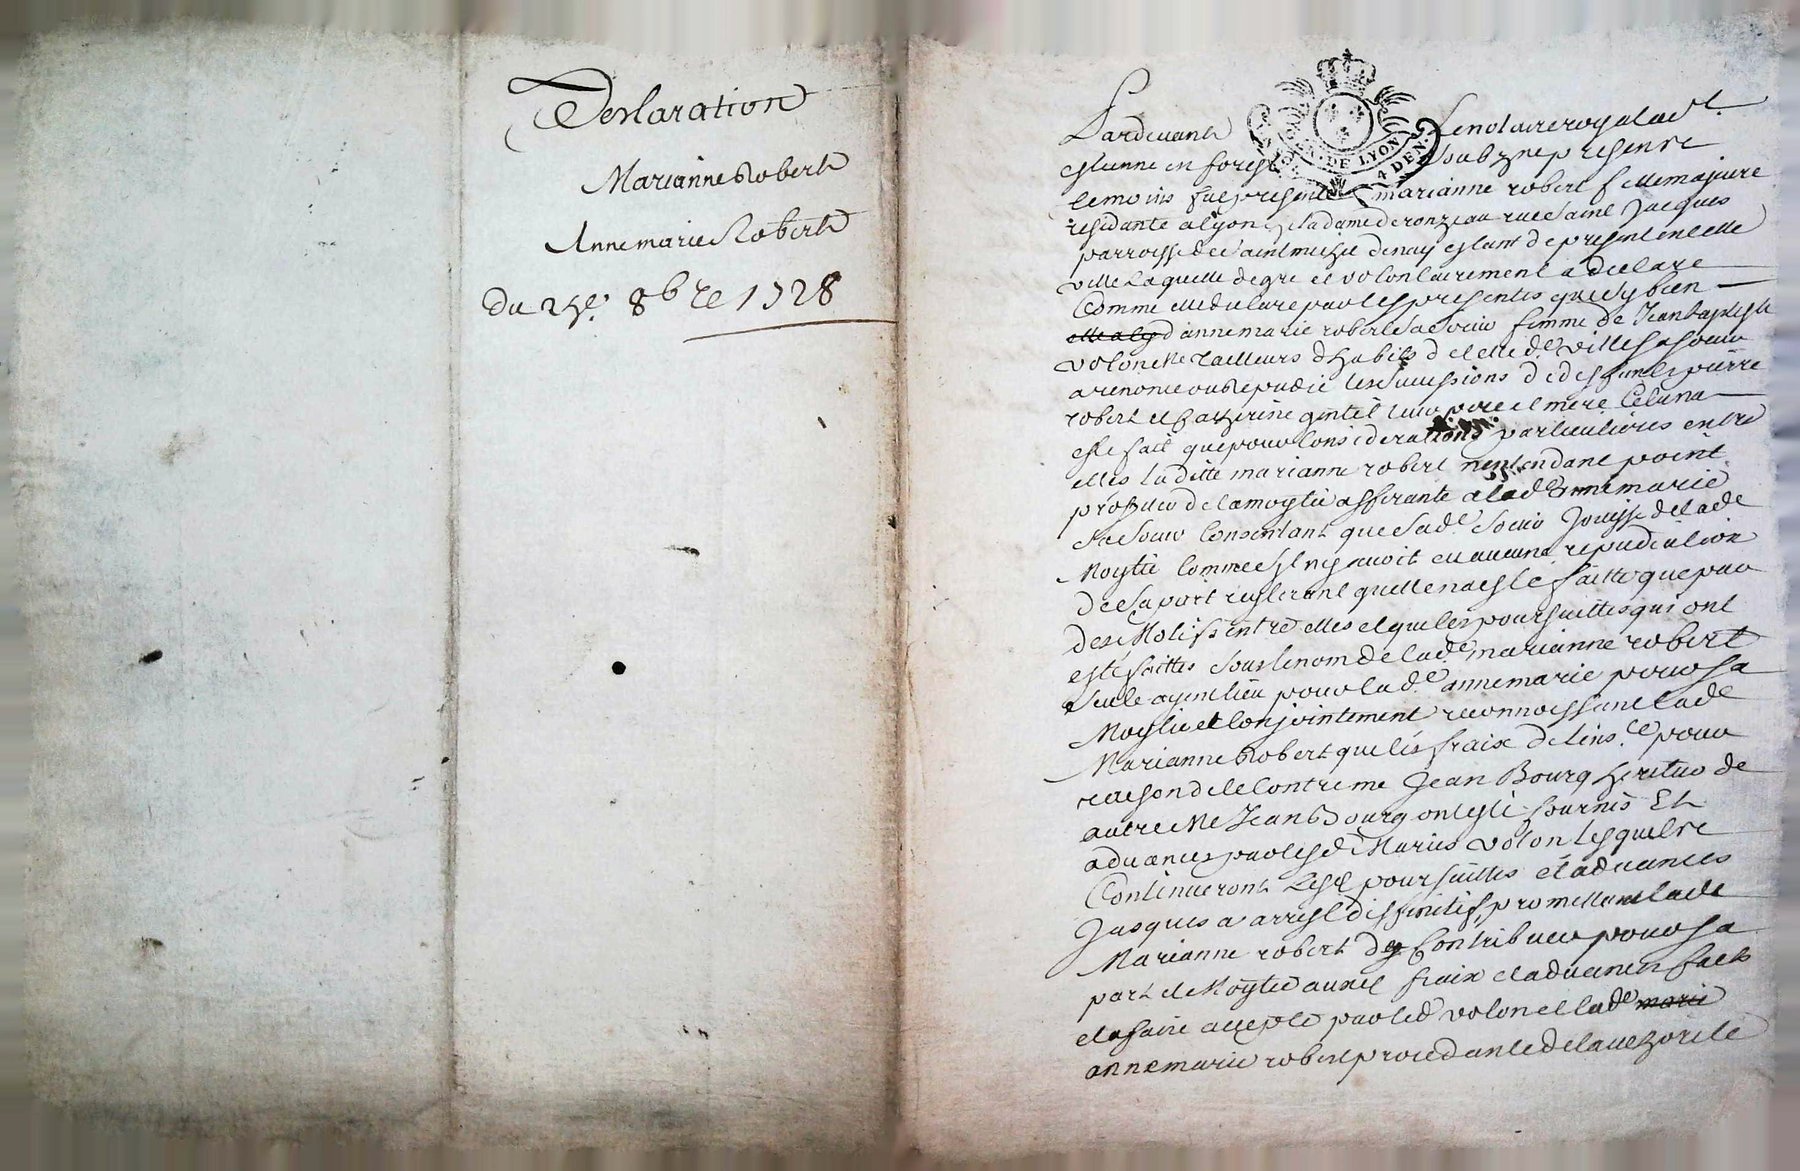 Declaration
Marianne Robert
Annemarie Robert
Du 25e. 8bre 1728
DE LYON
4 DEN.
Pardevant Le notaire royal a St
estienne en forest soubzne presents
temoins fut presente marianne robert fille majeure
residante a lyon rue saint Jacques
parroisse de saint nizié estant de present en cette
ville laquelle de gre et volontairement a declare
Comme elle declare par les presentes que sy bien
elle a d'annemarie robert sa soeur femme de Jean baptiste
volon Me tailleurs d'habits de cette de. ville sa soeur
a renonce ou repudié les successions de deffunts pierre
robert et Catherine gentil leur pere et mere Cela na
este fait que pour Considerations particulieres entre
elles laditte marianne robert nentendant point
profiter de la moytié afferante a lade annemarie
sa soeur Consentant que sade. soeur Jouisse de lade
Moytié Comme sy ny avoit eu aucune repudiation
de sa part que na esté faitte que par
des Motifs entre elles et que les poursuittes qui ont
esté faittes sous le nom de lade. marianne robert
seule ayent lieu pour lade. annemarie pour sa
Moytié et Conjointement reconnoissant lade
Marianne Robert que les fraix de lins.ce pour
raison de Contre me Jean Bourg heritier de
autre Me Jean Bourg ont esté fournis Et
advances par lesd Mariés volon Lesquels
Continueront Lesd poursuittes et advances
Jusques a arrest diffinitif, promettant lade
Marianne robert dy Contribuer pour sa
part et Moytié auxd fraix et advances faits
et a faire accepte par led volon et lade marie
annemarie robert procedante de lauthorité